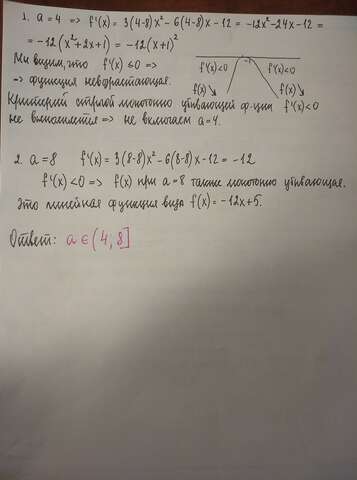 1. a = 4 => f'(x) = 3(4-8)x² - 6(4-8)x - 12 = -12x² - 24x - 12 =
= -12(x² + 2x + 1) = -12(x+1)²
Мы видим, что f'(x) ≤ 0 =>
=> функция невозрастающая.
f'(x)<0 -1 f'(x)<0
f(x) ↘ f(x) ↘
Критерий строгой монотонно убывающей ф-ции f'(x) < 0
не выполняется => не включаем a = 4.
2. a = 8 f'(x) = 3(8-8)x² - 6(8-8)x - 12 = -12
f'(x) < 0 => f(x) при a = 8 также монотонно убывающая.
Это линейная функция вида f(x) = -12x + 5.
Ответ: a ∈ (4; 8]